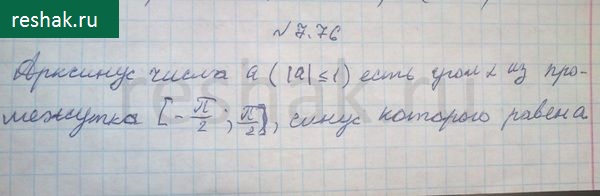 reshak.ru
№7.76
Арксинус числа a (|a| ≤ 1) есть угол α из про-
межутка [-π/2; π/2], синус которого равен a